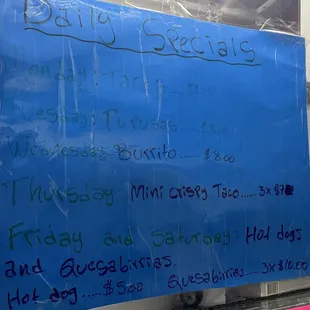 Daily Specials
Monday: Tacos
Tuesday: Pupusas
Wednesday: Burrito...... $8.00
Thursday: Mini crispy Taco..... 3x $7
Friday and Saturday: Hot dogs
and Quesabirrias.
Quesabirrias..... 3x $10.00
Hot dog ..... $5.00